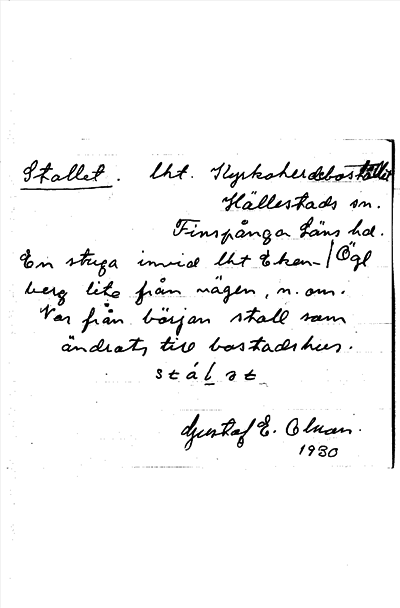 Stallet. lht. Kyrkoherdebostället
Hällestads sn.
Finspånga läns hd.
En stuga invid lht Eken- / Ögl
berg lite från vägen, n. om.
Var från början stall som
ändrats till bostadshus.
stál ət
Gustaf E. Olsson.
1930